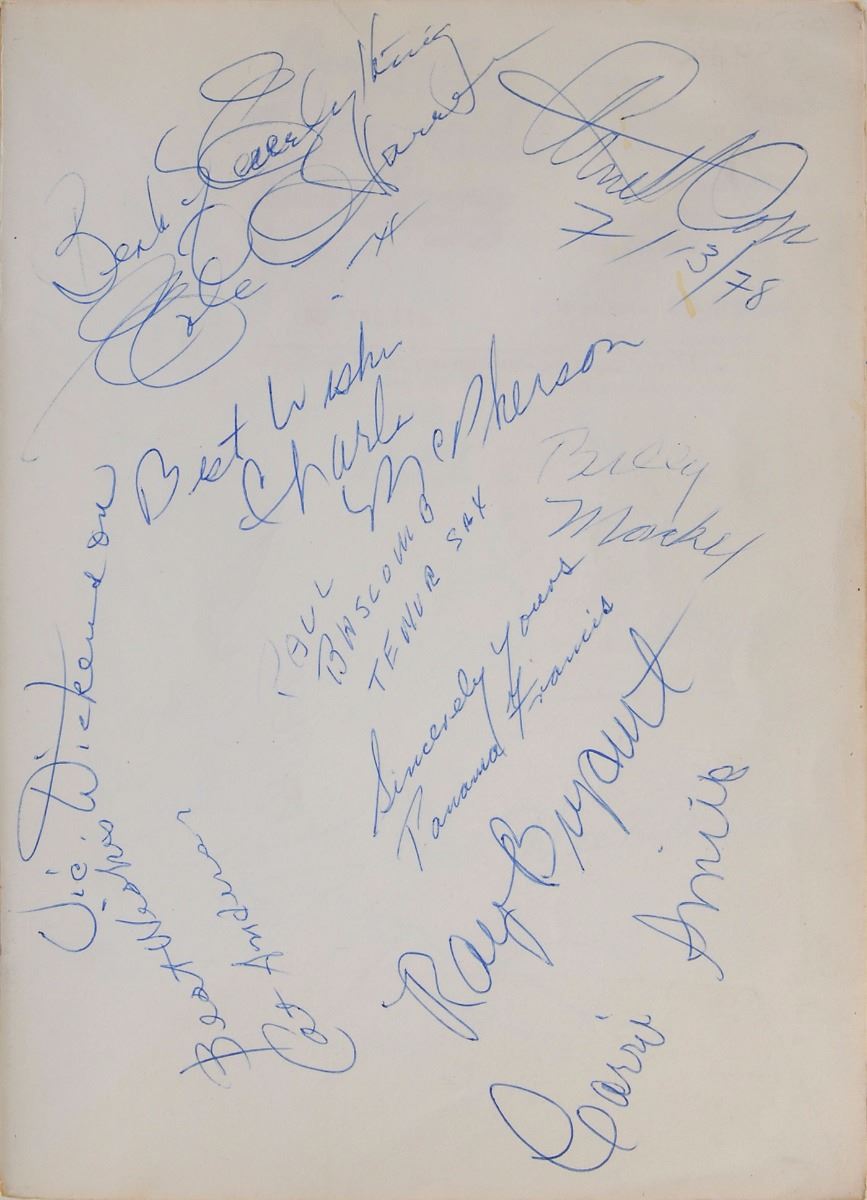 Best Everything
Eddie Harris
Arnett Cobb
7/13/78
Best Wishes
Charles
McPherson
Paul
Bascomb
Tenor Sax
Sincerely Yours
Panama Francis
Vic Dickenson
Best Wishes
Cat Anderson
Ray Bryant
Carrie Smith